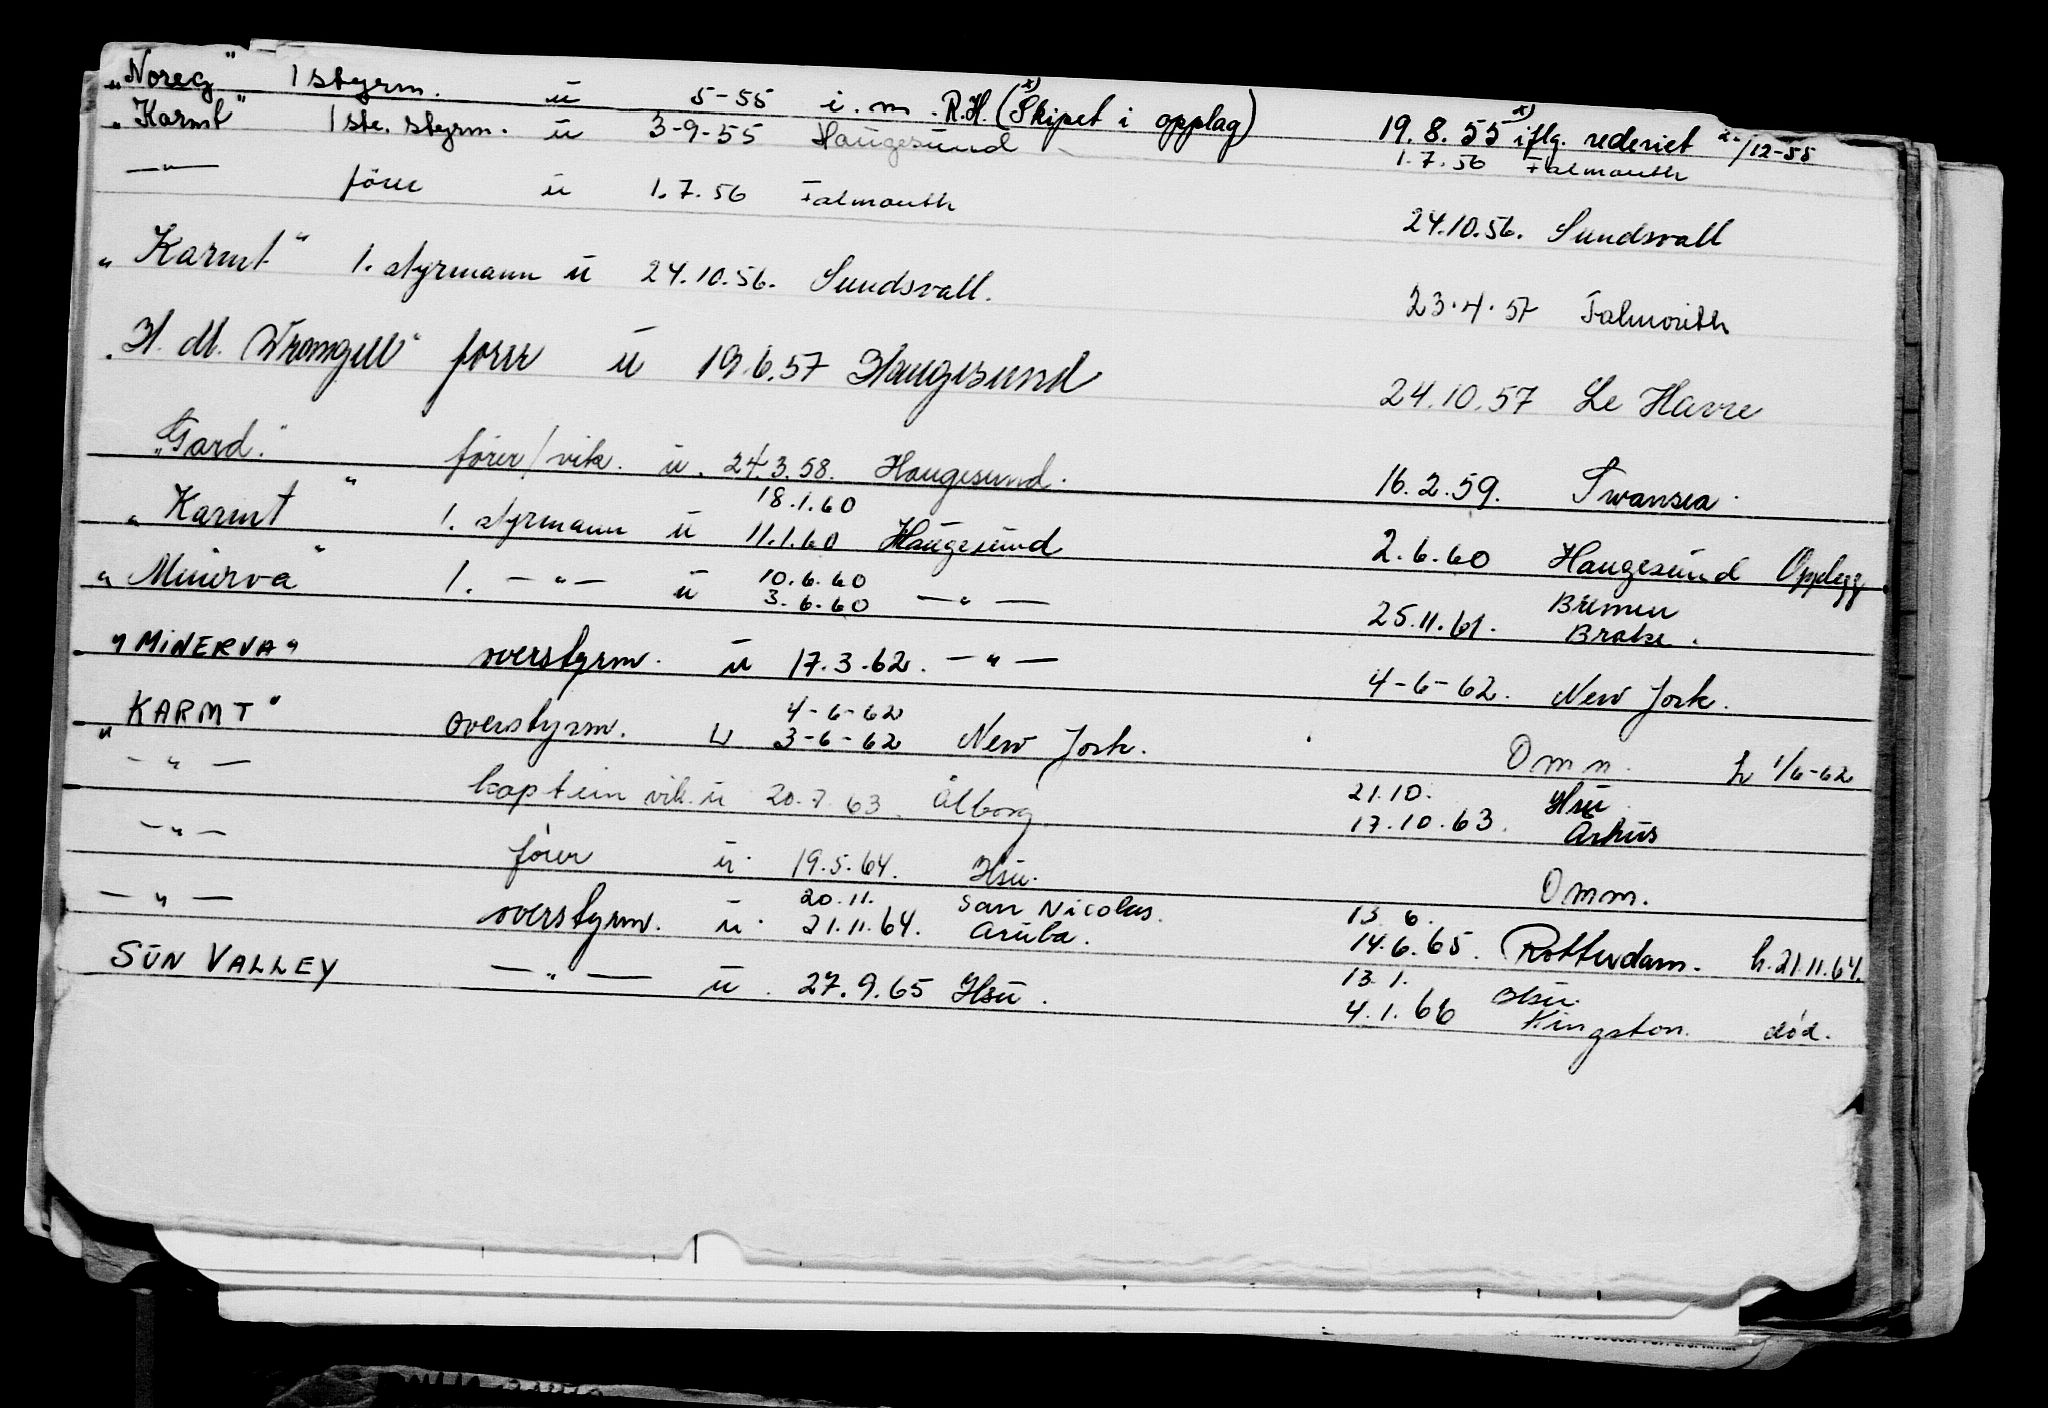 „Noreg" 1 styrm. u 5-55 i.m. R.H. (Skipet i opplag) x) 19.8.55 x) iflg. rederiet /12-55
„Karmt" 1ste. styrm. u 3-9-55 Haugesund 1.7.56 Falmouth
—"— fører u 1.7.56 Falmouth 24.10.56. Sundsvall
„Karmt" 1. styrmann u 24.10.56. Sundsvall. 23.4.57 Falmouth
„H. M. Wrangell" fører u 19.6.57 Haugesund 24.10.57 Le Havre
„Gard." fører/vik. u. 24.3.58. Haugesund. 16.2.59. Swansea.
18.1.60
„Karmt" 1. styrmann u 11.1.60 Haugesund 2.6.60 Haugesund Opplegg
10.6.60 Bremen
„Minerva" 1. —"— u 3.6.60 —"— 25.11.61. Brake.
„MINERVA" overstyrm. u 17.3.62. —"— 4-6-62. New York.
4-6-62
„KARMT" overstyrm. u 3-6-62 New York. Omm. h 1/6-62
21.10. Hsu
—"— kaptein vik. u 20.7.63. Ålborg 17.10.63. Århus
—"— fører u. 19.5.64. Hsu. Omm.
20.11. San Nicolas. 13.6.
—"— overstyrm. u. 21.11.64. Aruba. 14.6.65. Rotterdam. h. 21.11.64.
13.1. Hsu.
SUN VALLEY —"— u. 27.9.65 Hsu. 4.1.66 Kingston. død.